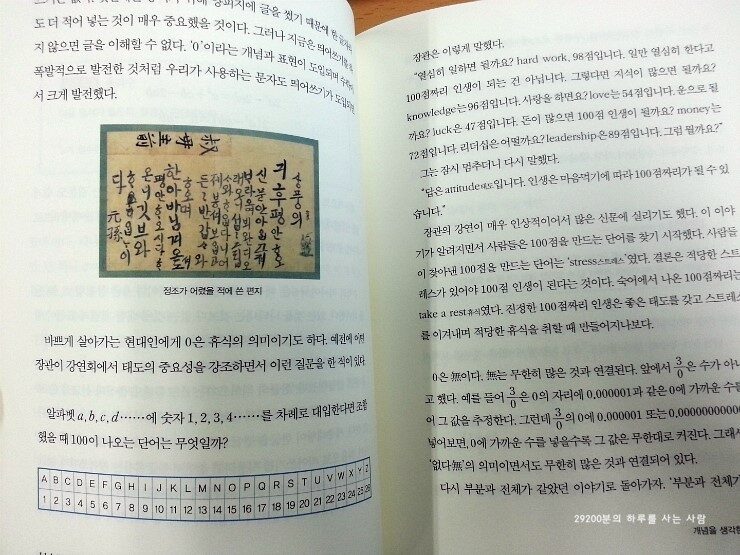 도 더 적어 넣는 것이 매우 중요했을 것이다. 그러나 지금은 띄어쓰기를
지 않으면 글을 이해할 수 없다. '0'이라는 개념과 표현이 도입되며 수학이
폭발적으로 발전한 것처럼 우리가 사용하는 문자도 띄어쓰기가 도입되면
서 크게 발전했다.
정조가 어렸을 적에 쓴 편지
바쁘게 살아가는 현대인에게 0은 휴식의 의미이기도 하다. 예전에 어떤
장관이 강연회에서 태도의 중요성을 강조하면서 이런 질문을 한 적이 있다.
알파벳 a, b, c, d ……에 숫자 1, 2, 3, 4……를 차례로 대입한다면 조합
했을 때 100이 나오는 단어는 무엇일까?
A B C D E F G H I J K L M N O P Q R S T U V W X Y Z
1 2 3 4 5 6 7 8 9 10 11 12 13 14 15 16 17 18 19 20 21 22 23 24 25 26
장관은 이렇게 말했다.
"열심히 일하면 될까요? hard work, 98점입니다. 일만 열심히 한다고
100점짜리 인생이 되는 건 아닙니다. 그렇다면 지식이 많으면 될까요?
knowledge는 96점입니다. 사랑을 하면요? love는 54점입니다. 운으로 될
까요? luck은 47점입니다. 돈이 많으면 100점 인생이 될까요? money는
72점입니다. 리더십은 어떨까요? leadership은 89점입니다. 그럼 뭘까요?"
그는 잠시 멈추더니 다시 말했다.
"답은 attitude태도입니다. 인생은 마음먹기에 따라 100점짜리가 될 수 있
습니다."
장관의 강연이 매우 인상적이어서 많은 신문에 실리기도 했다. 이 이야
기가 알려지면서 사람들은 100점을 만드는 단어를 찾기 시작했다. 사람들
이 찾아낸 100점을 만드는 단어는 'stress스트레스'였다. 결론은 적당한 스트
레스가 있어야 100점 인생이 된다는 것이다. 숙어에서 나온 100점짜리는
take a rest휴식였다. 진정한 100점짜리 인생은 좋은 태도를 갖고 스트레스
를 이겨내며 적당한 휴식을 취할 때 만들어지나보다.
0은 無이다. 無는 무한히 많은 것과 연결된다. 앞에서 3/0은 수가 아니
고 했다. 예를 들어 3/0은 0의 자리에 0.000001과 같은 0에 가까운 수를
어 그 값을 추정한다. 그런데 3/0의 0에 0.000001 또는 0.0000000000
넣어보면, 0에 가까운 수를 넣을수록 그 값은 무한대로 커진다. 그래서
'없다無'의 의미이면서도 무한히 많은 것과 연결되어 있다.
다시 부분과 전체가 같았던 이야기로 돌아가자. '부분과 전체가
29200분의 하루를 사는 사람
개념을 생각